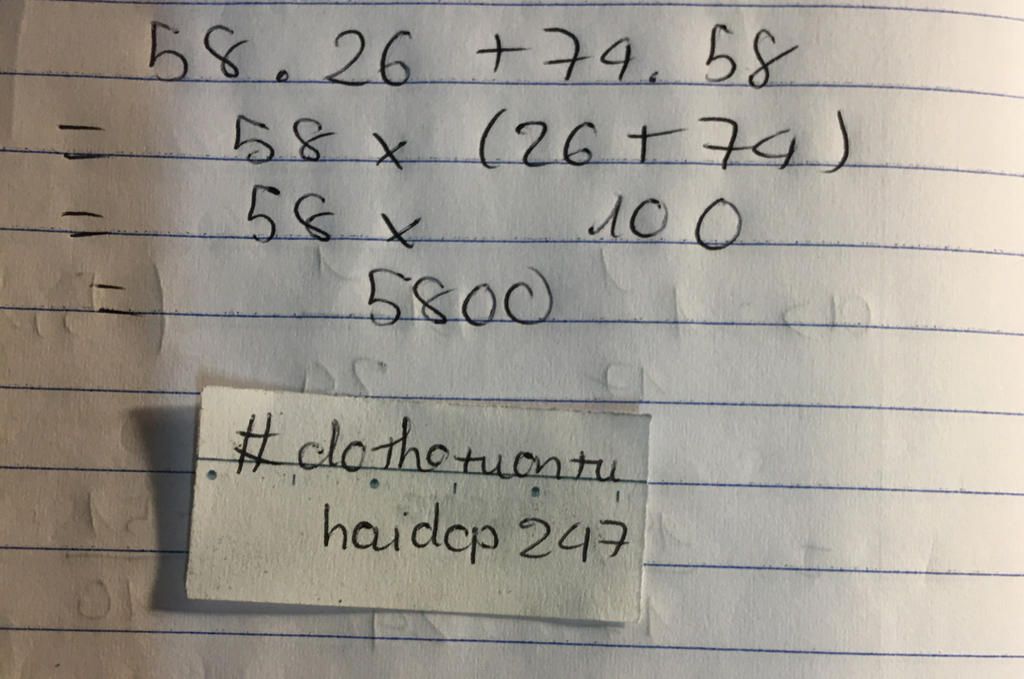 58.26 +74.58
= 58 x (26+74)
= 58 x 100
= 5800
#dothotuontu
haidap 247